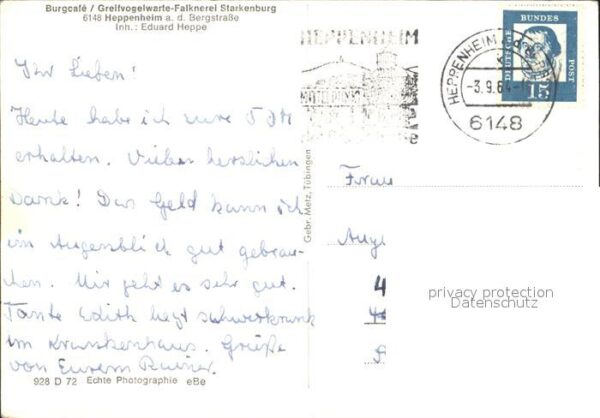 Burgcafé / Greifvogelwarte-Falknerei Starkenburg
6148 Heppenheim a. d. Bergstraße
Inh.: Eduard Heppe
Ihr Lieben!
Heute habe ich eure 5 DM
erhalten. Vielen herzlichen
Dank! Das Geld kann ich
im Augenblick gut gebrau-
chen. Mir geht es sehr gut.
Tante Edith liegt schwerkrank
im Krankenhaus. Grüße
von Eurem Rainer.
928 D 72 Echte Photographie eBe
Gebr. Metz, Tübingen
HEPPENHEIM
HEPPENHEIM
-3.9.64
6148
DEUTSCHE
BUNDES
POST
15
Frau
4
privacy protection
Datenschutz